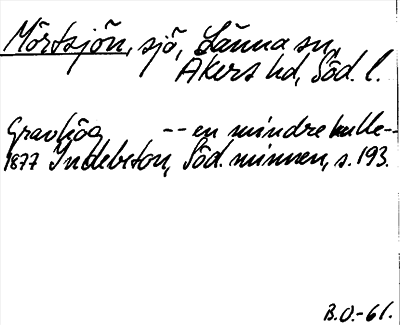 Mörtsjön, sjö, Länna sn,
Åkers hd, Söd. l.
Gravhög -- en mindre kulle--
1877 Indebetou, Söd. minnen, s. 193.
B.O.-61.